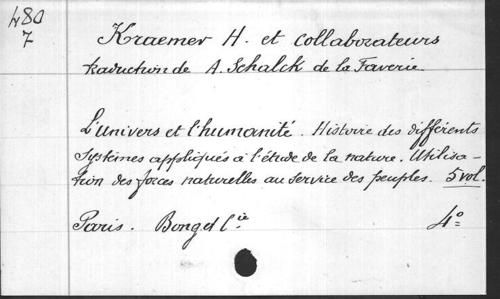 480
7
Kraemer H. et collaborateurs
traduction de A. Schalck de la Faverie
L'univers et l'humanité. Histoire des différents
systèmes appliqués à l'étude de la nature. Utilisa-
tion des forces naturelles au service des peuples. 5 vol.
Paris. Bong et Cie. 4°